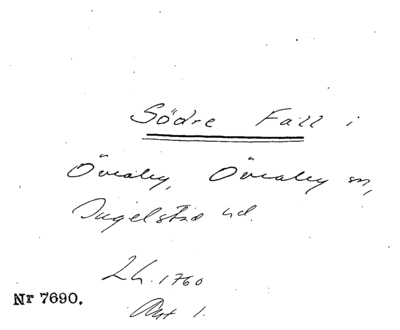 Södre Fall i
Övraby, Övraby sn,
Ingelstad hd.
Lh. 1760
Nr 7690.
Akt 1.